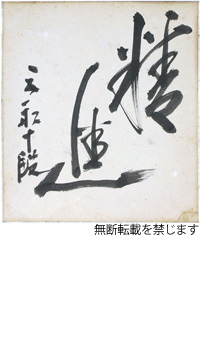 精進
三船十段
無断転載を禁じます